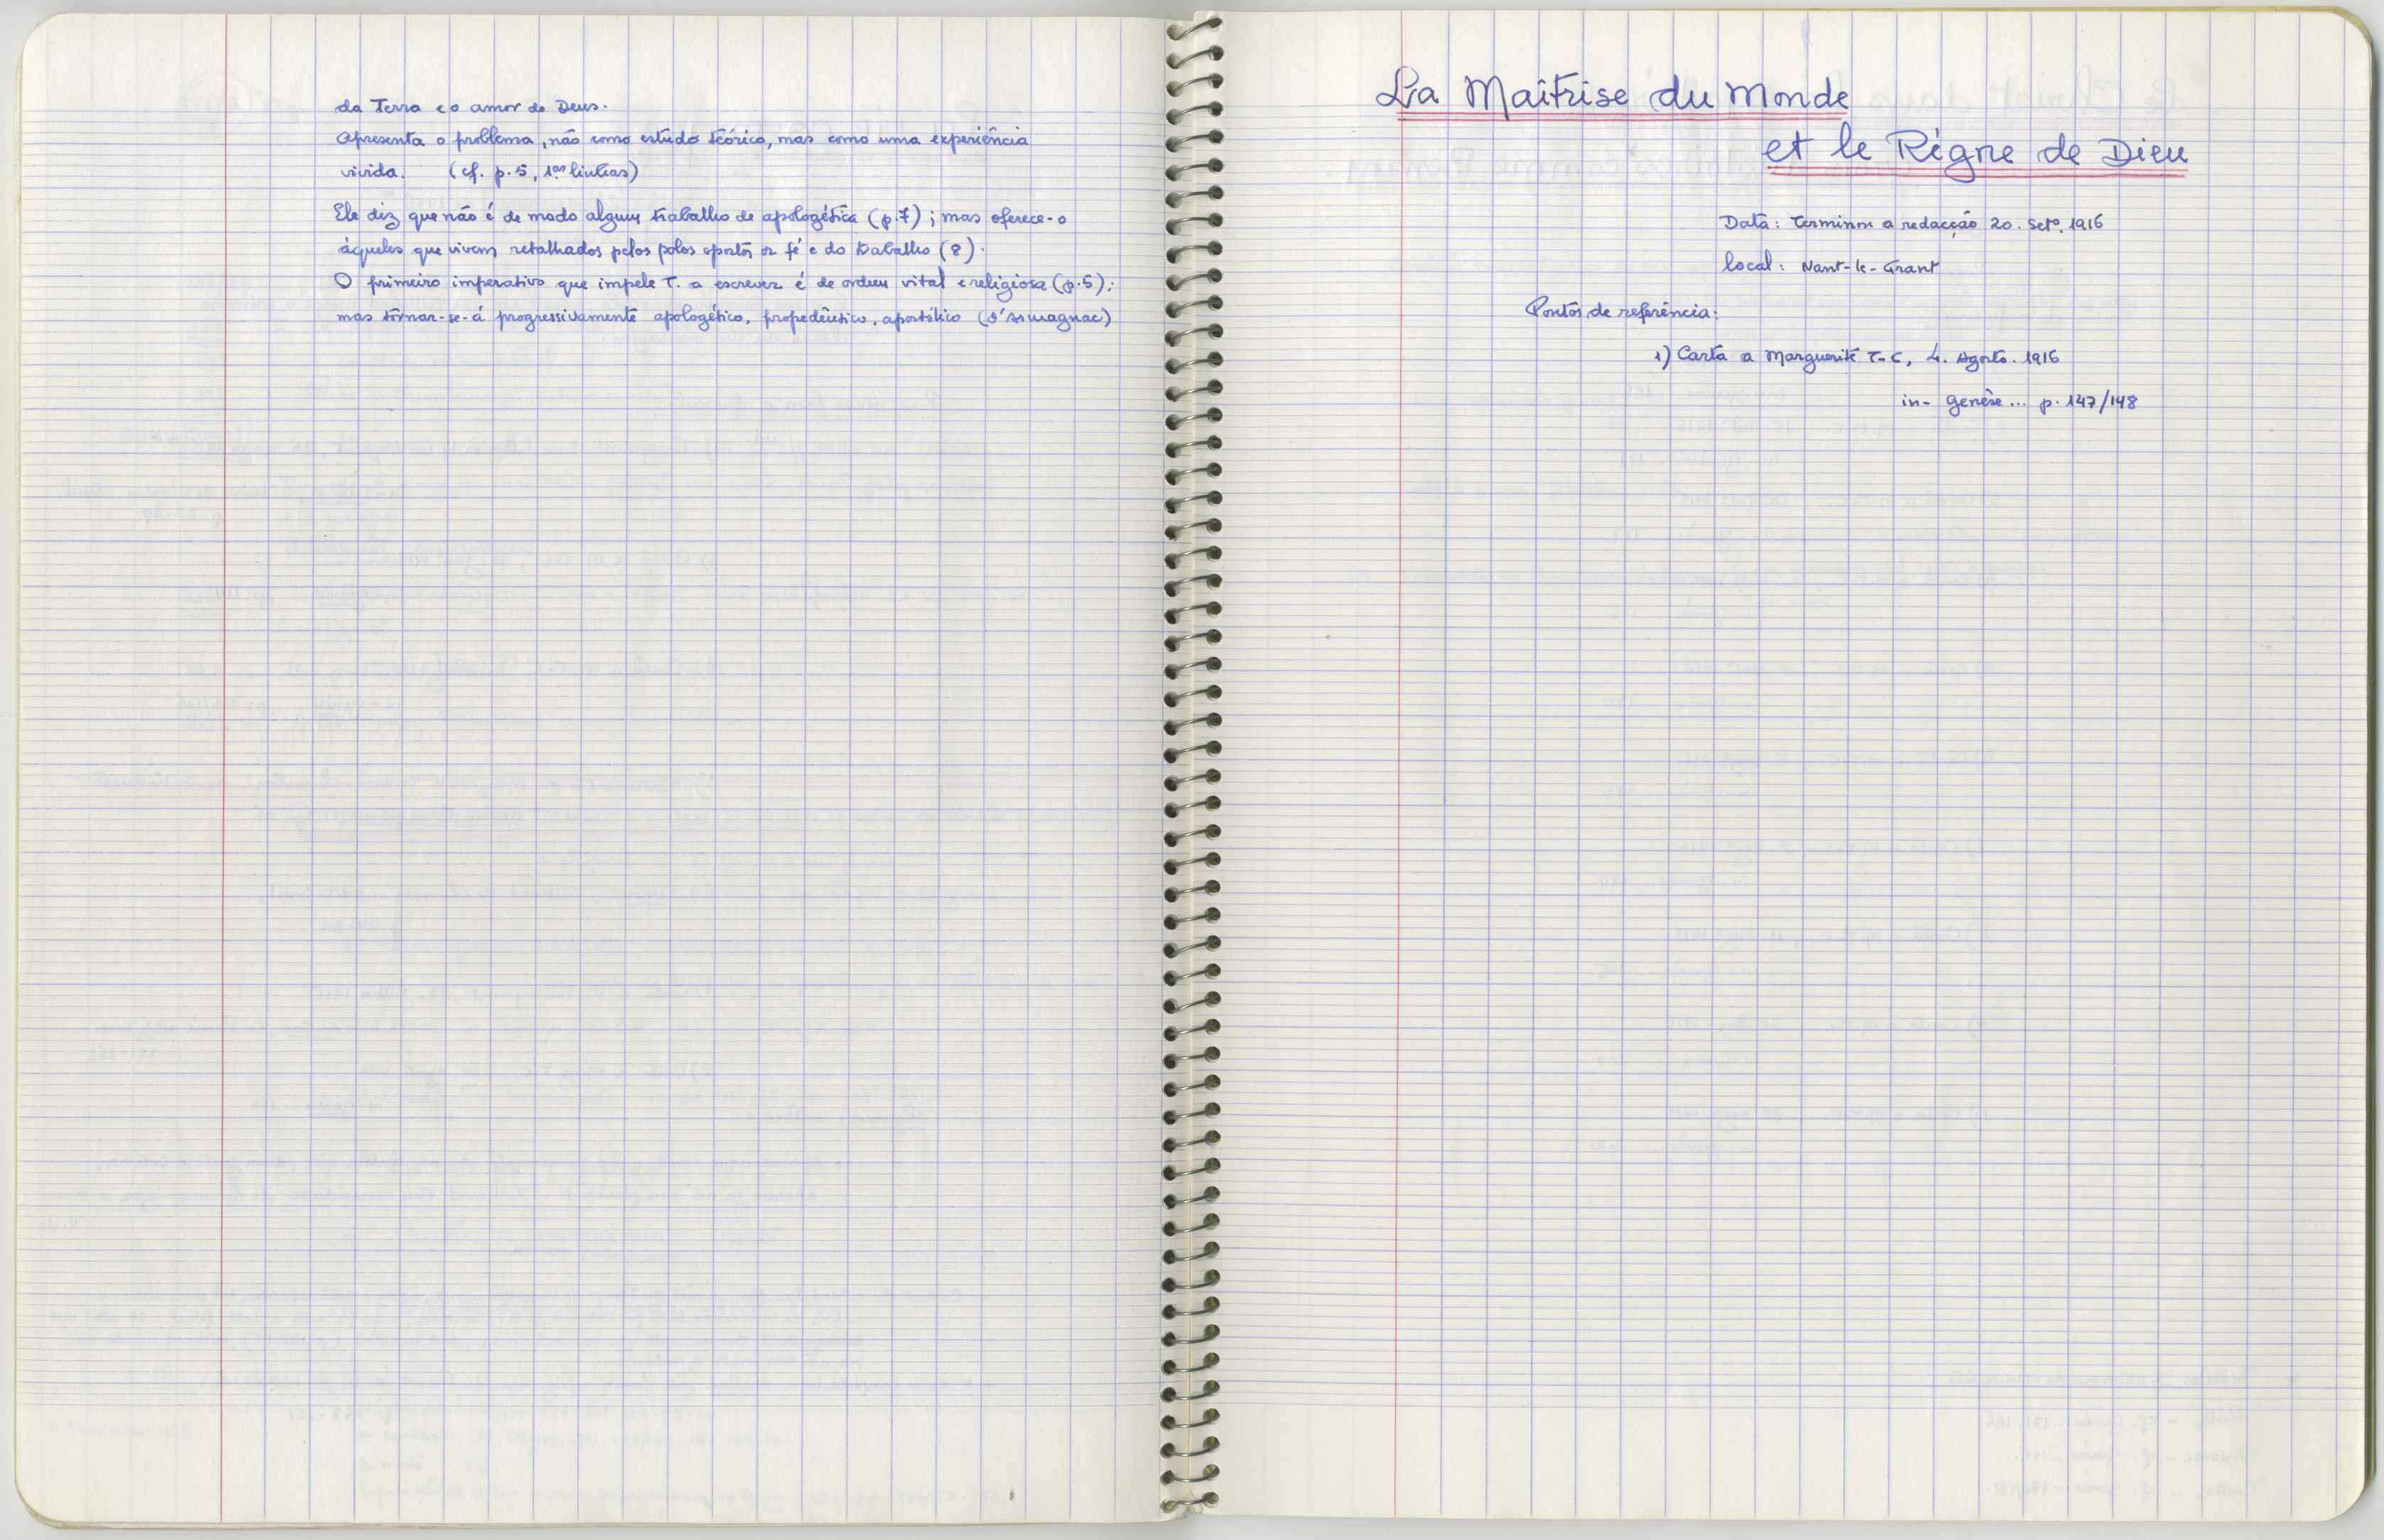 da Terra e o amor de Deus.
Apresenta o problema, não como estudo teórico, mas como uma experiência
vivida. (cf. p. 5, 1as linhas)
Ele diz que não é de modo algum trabalho de apologética (p. 7) ; mas oferece-o
àqueles que vivem retalhados pelos polos opostos fé e do trabalho (8).
O primeiro imperativo que impele T. a escrever é de ordem vital e religiosa (p. 5);
mas tornar-se-á progressivamente apologético, propedêutico, apostólico (d'Armagnac)
La Maîtrise du Monde
et le Règne de Dieu
Data: Terminou a redacção 20. Setº. 1916
local: Nant-le-Grant
Pontos de referência:
1) Carta a Marguerite T-C, 4. Agosto. 1916
in- Genèse... p. 147/148